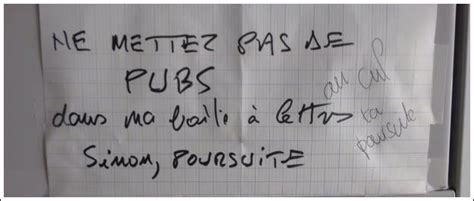 NE METTEZ PAS DE
PUBS
dans ma boîte à lettres
Sinon, POURSUITE
au cul
ta
poursuite